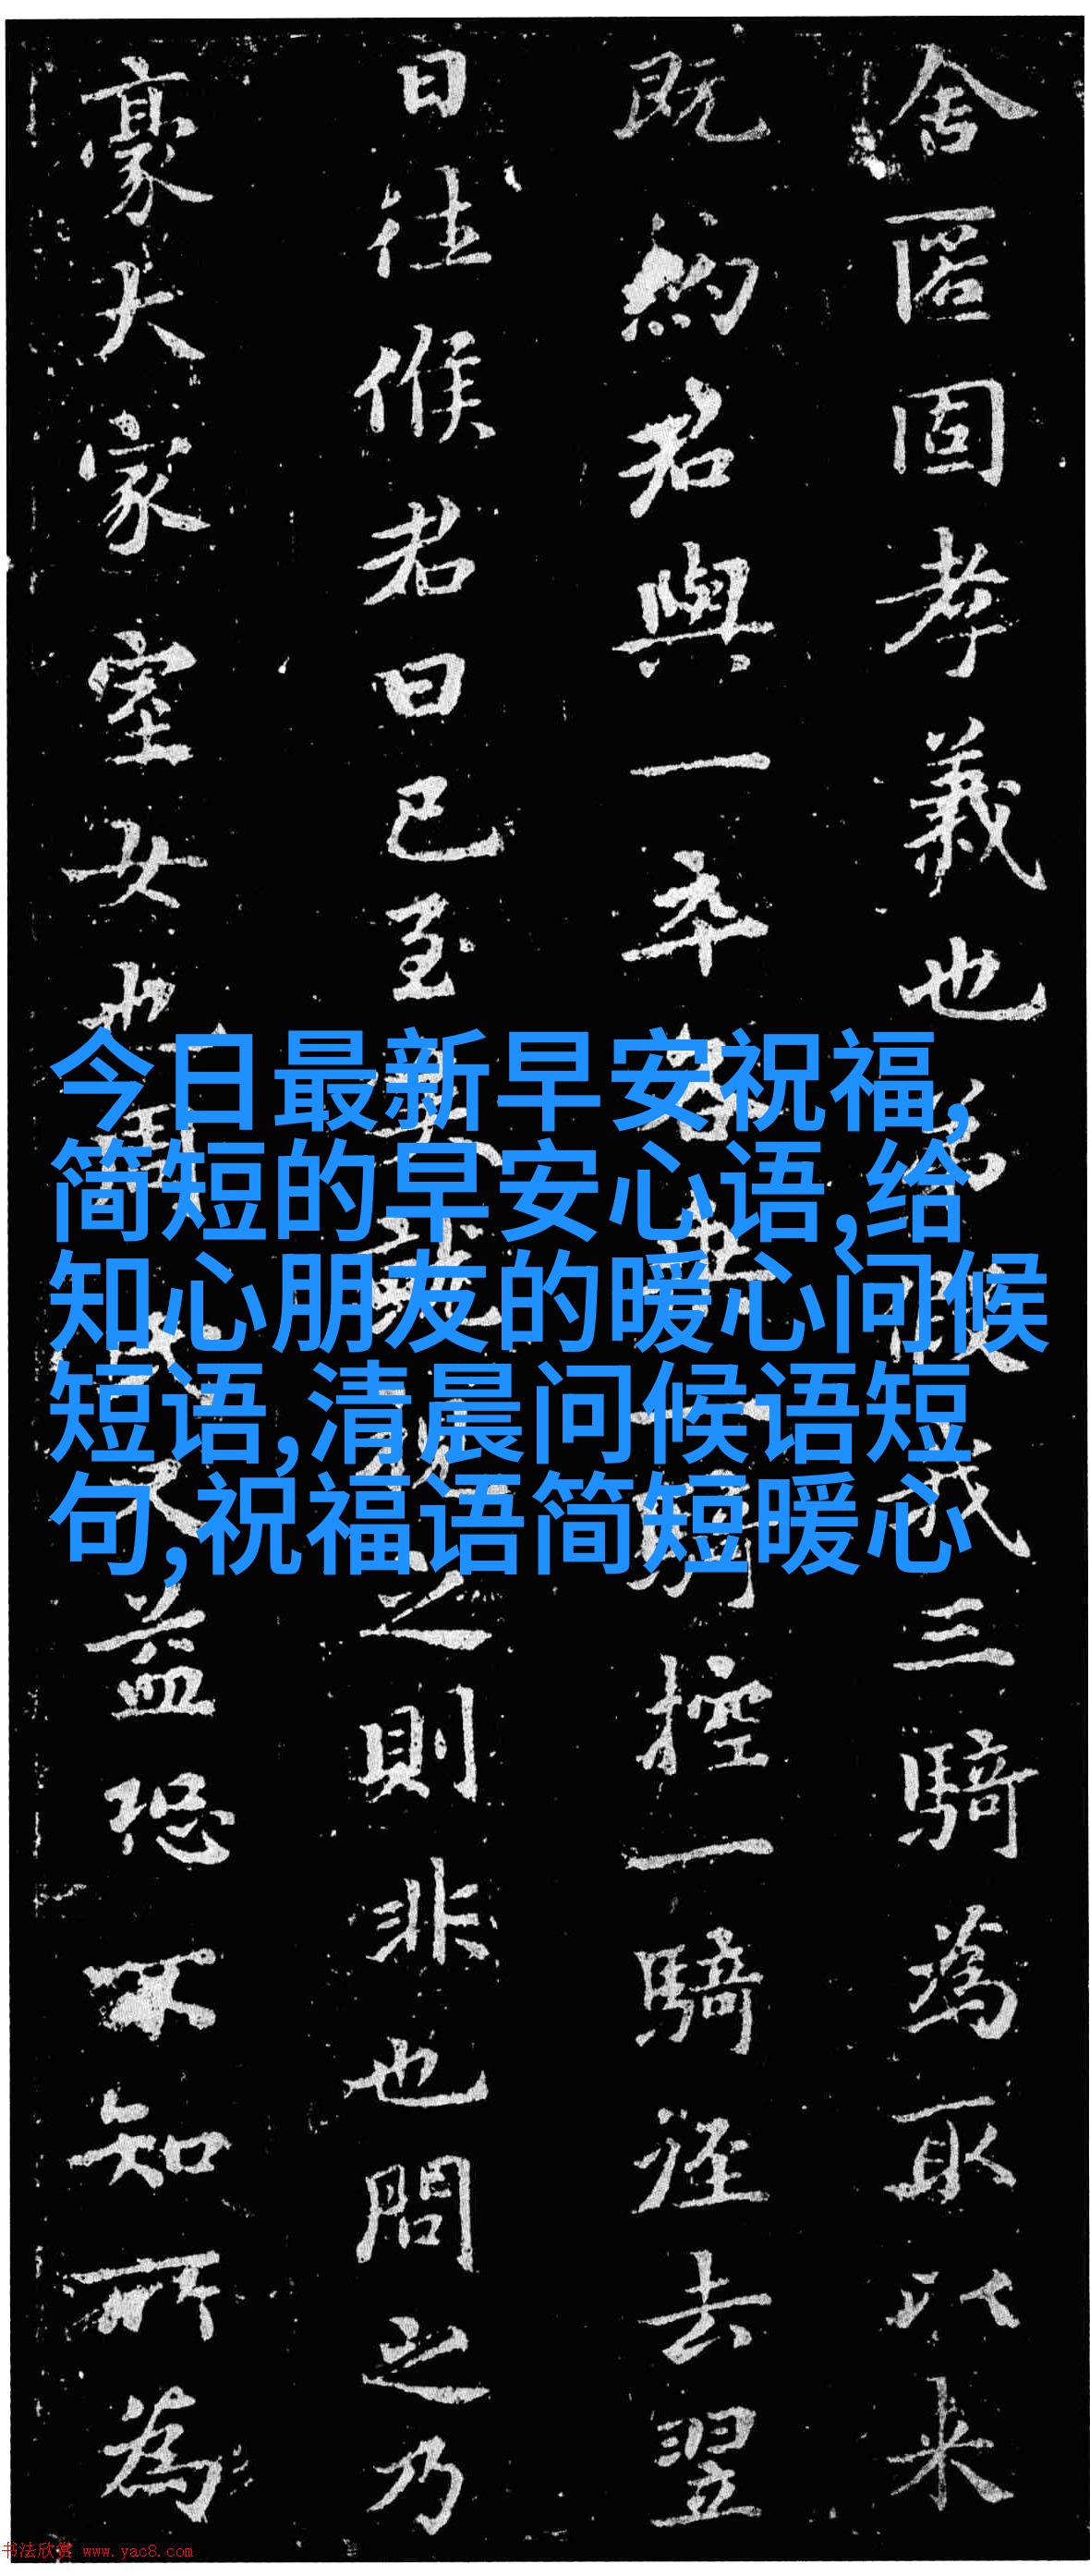 舍匿固孝義也
三騎為取以来
既約君與一卒
控一騎徑去翌
日往候君君曰已至
之則非也問之乃
豪大家室女也
益恐不知所為
今日最新早安祝福,
简短的早安心语,给
知心朋友的暖心问候
短语,清晨问候语短
句,祝福语简短暖心
书法欣赏 www.yac8.com